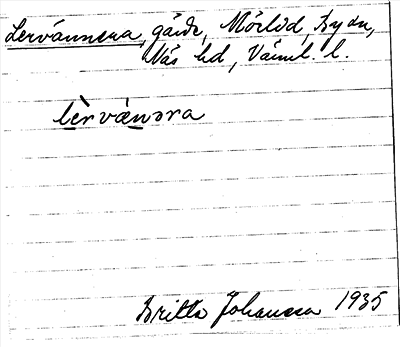 Lervännena, gärde, Mörlid, By sn,
Näs hd, Värml. l.
lèrvænɔra
Britta Johansson 1935